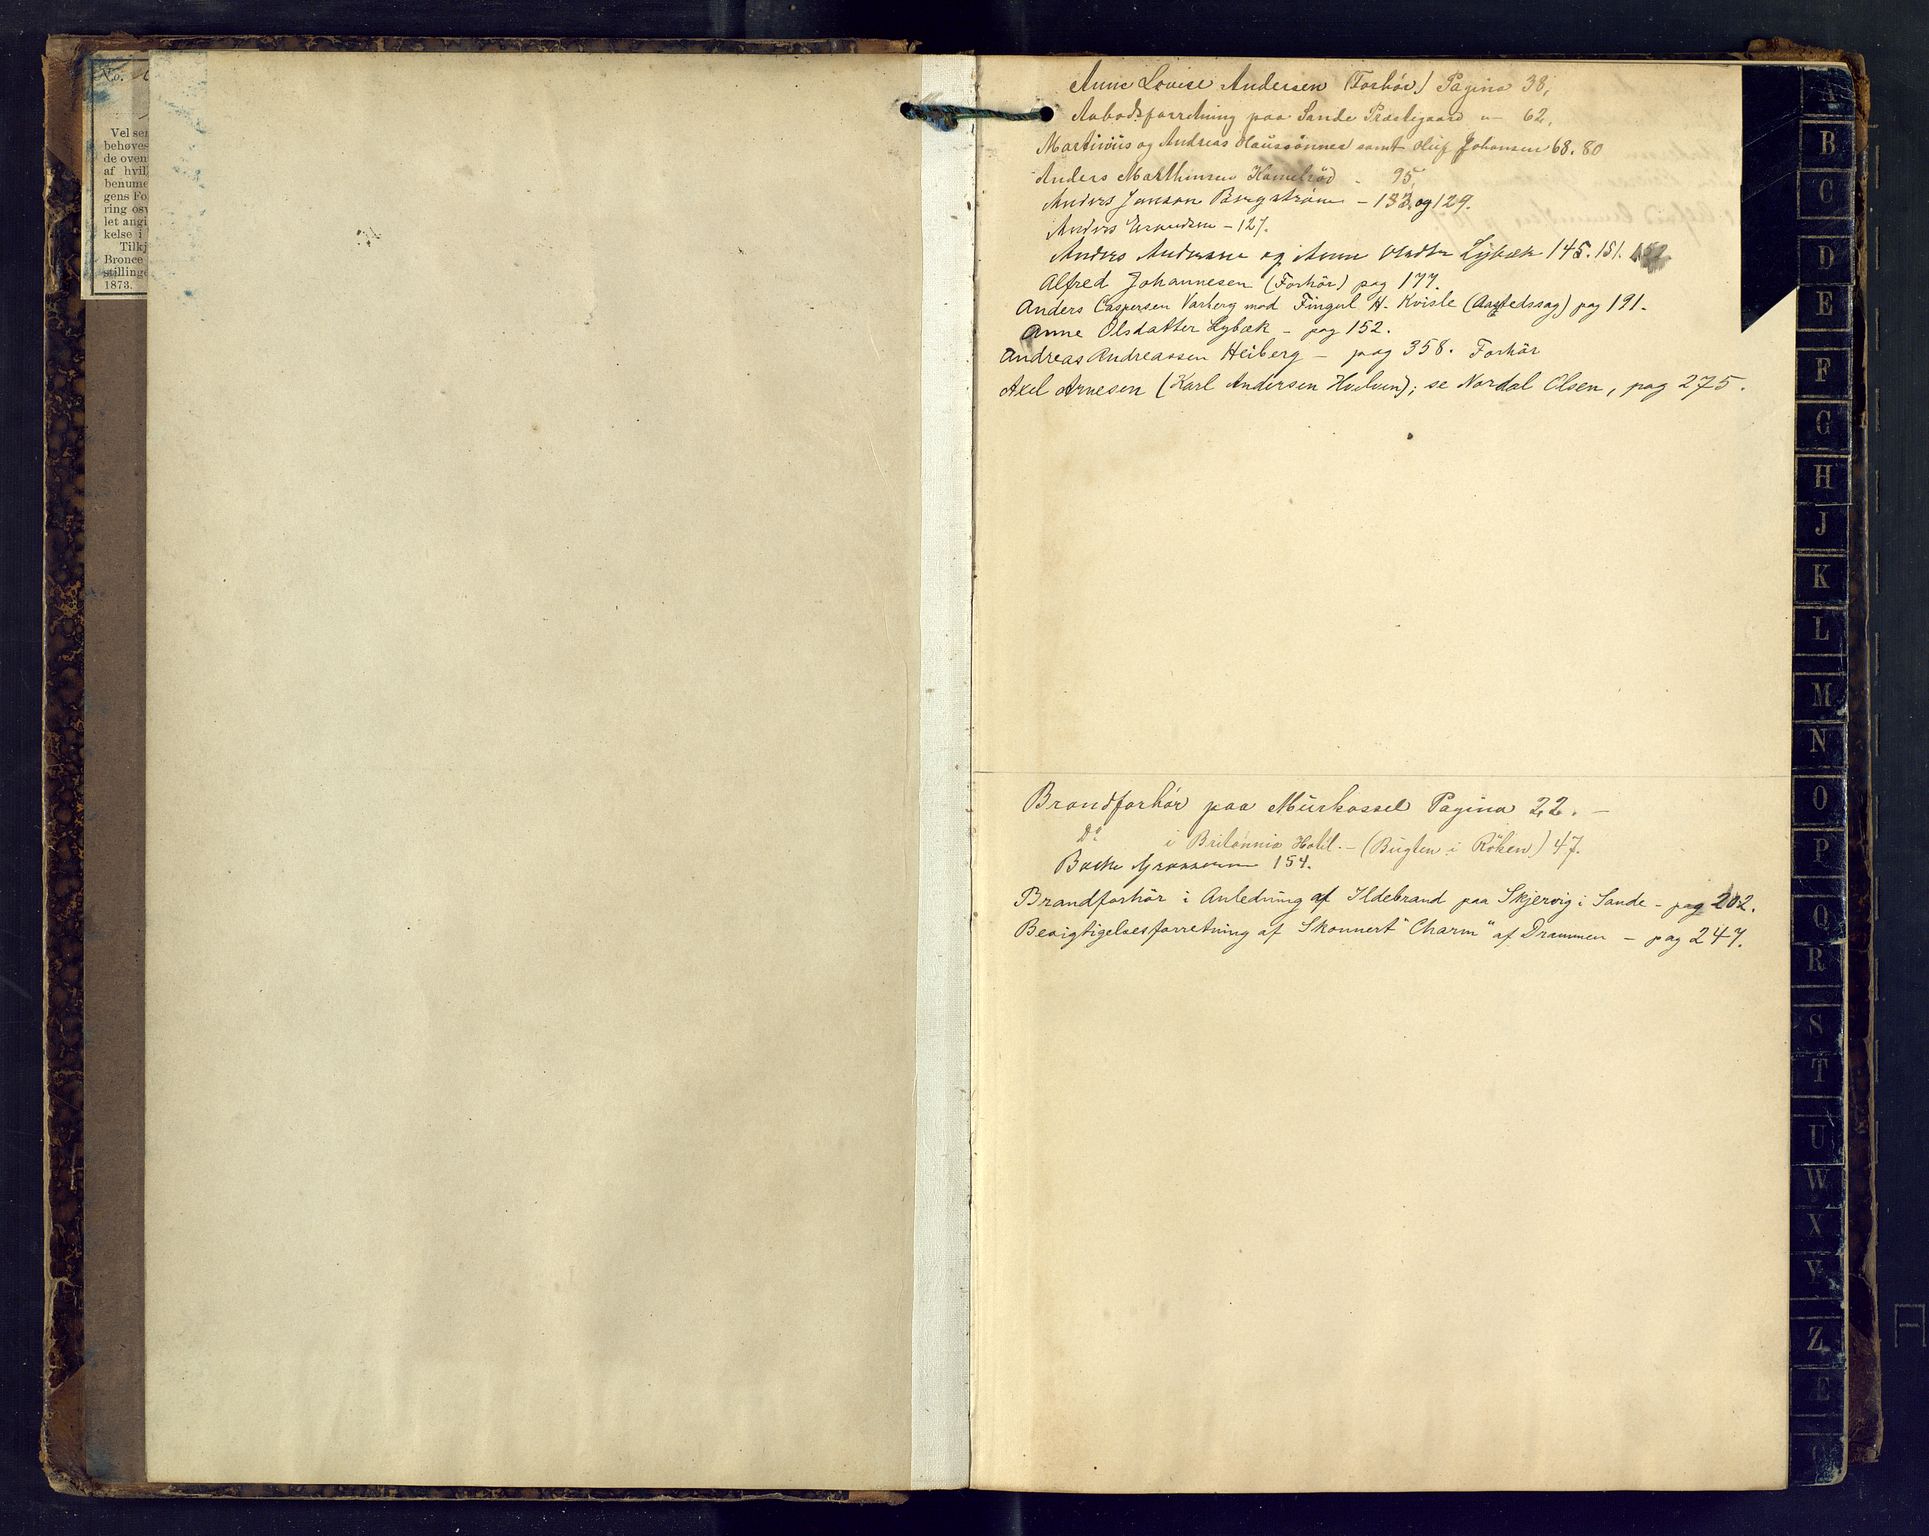 No.
Vel sen
behøves
de oven
af hvil
benume
gens Fo
ring osv
let angi
kelse i
Tilkj
Bronce
stilling
1873.
Anne Lovise Andersen (Forhör) Pagina 38,
Aabodsforretning paa Sande Præstegaard „ - 62,
Martinius og Andreas Hanssönner samt Oluf Johansen 68. 80
Anders Marthinsen - 95,
Anders Janson Bergström - 133 og 129.
Anders - 127.
Anders Andersen og Anne Olsdtr Lybæk 145. 151. 152
Alfred Johannesen (Forhör) pag 177.
Anders Caspersen Varberg mod Fingul H. Kvisle (Aastedssag) pag 191.
Anne Olsdatter Lybæk - pag 152.
Andreas Andreassen Heiberg - pag 358. Forhör
Axel Arnesen (Karl Andersen Hvelven); se Nordal Olsen, pag 275.
Brandforhör paa Murkassel Pagina 22. -
Do i Britannia Hotel. - (Bugten i Röken) 47.
Bache 154.
Brandforhör i Anledning af Ildebrand paa Skjervig i Sande - pag 202.
Besigtigelsesforretning af Skonnert "Charm" af Drammen - pag 247.
A
B
C
D
E
F
G
H
J
K
L
M
N
O
P
Q
R
S
T
U
W
X
Y
Z
Æ
Ø